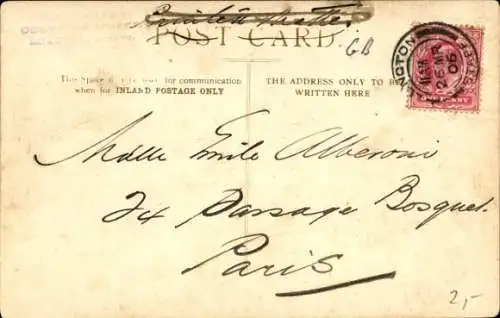 Printed Matter.
POST CARD.
GB
This Space may be used for communication
when for INLAND POSTAGE ONLY
THE ADDRESS ONLY TO BE
WRITTEN HERE
MR 25
05
Mdlle Emile Alberoni
24 Passage Bosquet.
Paris
2,-